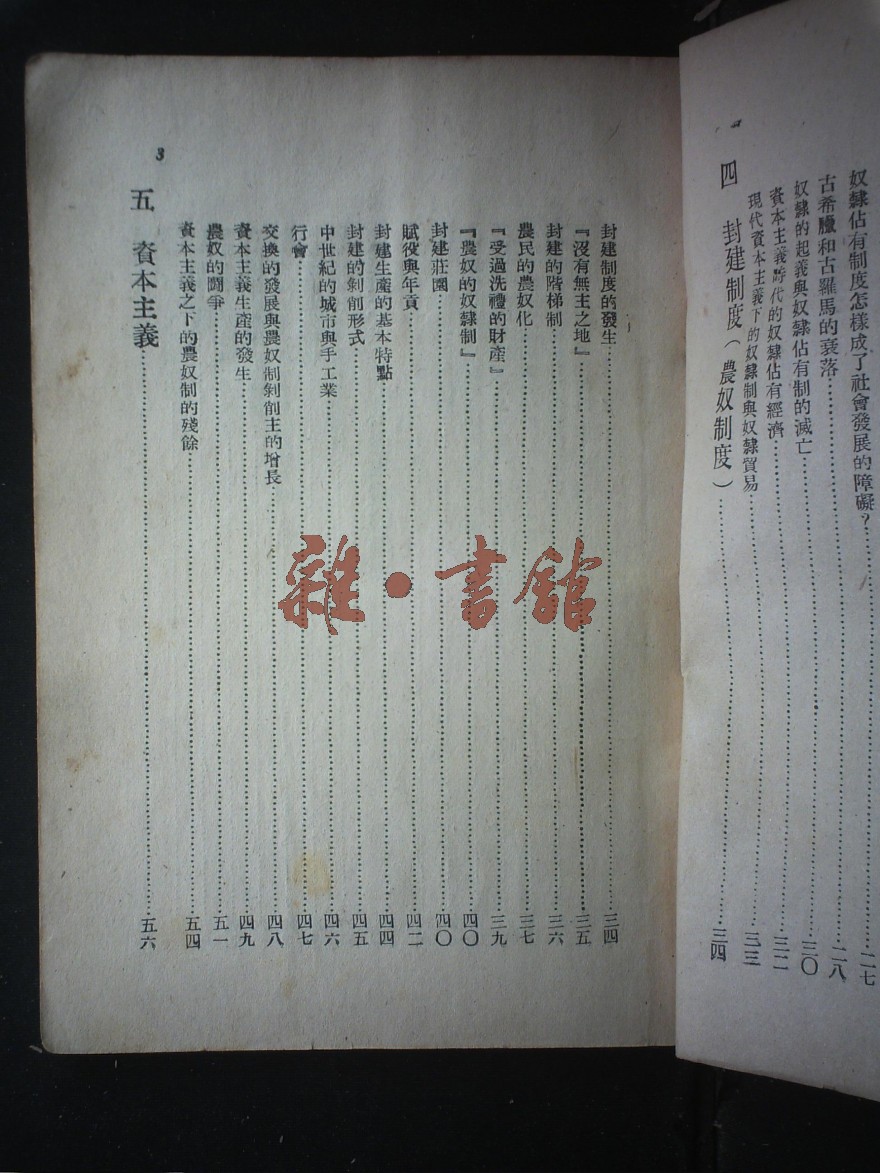 奴隸佔有制度怎樣成了社會發展的障礙？……二七
古希臘和古羅馬的衰落……二八
奴隸的起義與奴隸佔有制的滅亡……三〇
資本主義時代的奴隸佔有經濟……三二
現代資本主義下的奴隸制與奴隸貿易……三三
四 封建制度（農奴制度）……三四
封建制度的發生……三四
『沒有無主之地』……三五
封建的階梯制……三六
農民的農奴化……三七
『受過洗禮的財產』……三九
『農奴的奴隸制』……四〇
封建莊園……四〇
賦役與年貢……四二
封建生產的基本特點……四四
封建的剝削形式……四五
中世紀的城市與手工業……四六
行會……四七
交換的發展與農奴制剝削主的增長……四八
資本主義生產的發生……四九
農奴的鬪爭……五一
資本主義之下的農奴制的殘餘……五四
五 資本主義……五六
3
雜·書館